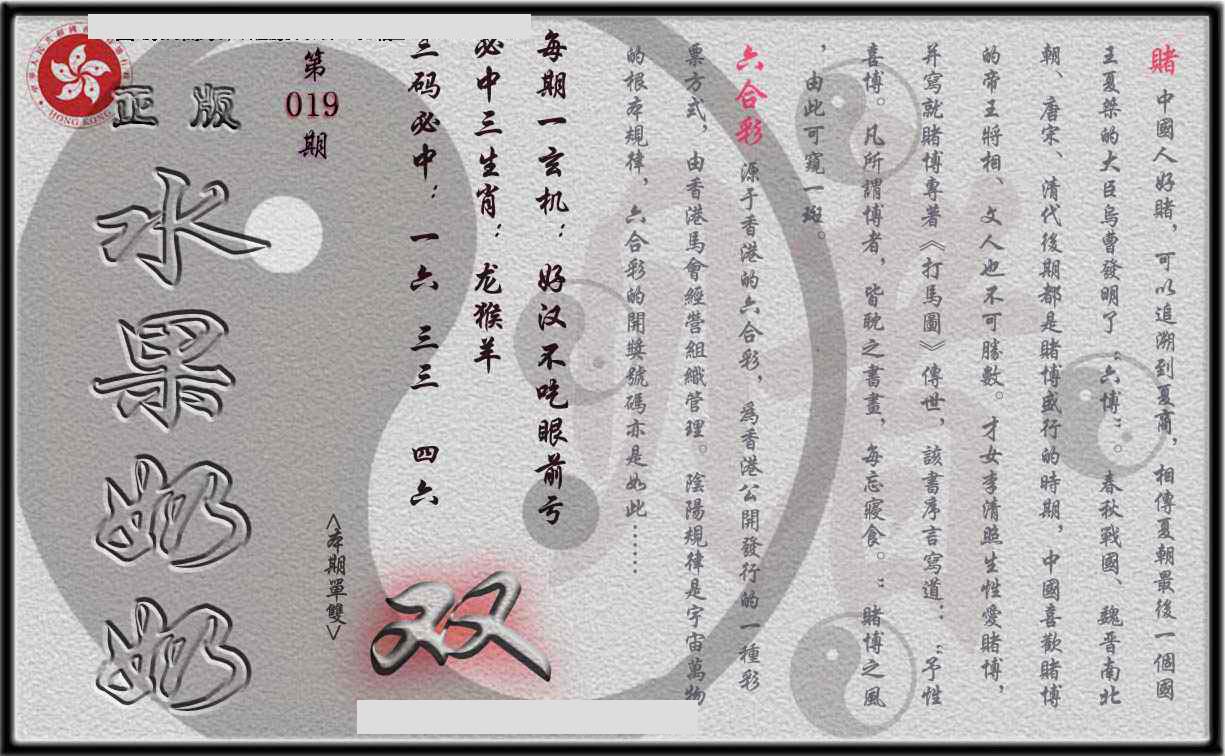 賭 中國人好賭，可以追溯到夏商，相傳夏朝最後一個國
王夏桀的大臣烏曹發明了“六博”。春秋戰國、魏晋南北
朝、唐宋、清代後期都是賭博盛行的時期，中國喜歡賭博
的帝王將相、文人也不可勝數。才女李清照生性愛賭博，
并寫就賭博專著《打馬圖》傳世，該書序言寫道：“予性
喜博。凡所謂博者，皆耽之書畫，每忘寢食。”賭博之風
，由此可窺一斑。
六合彩 源于香港的六合彩，爲香港公開發行的一種彩
票方式，由香港馬會經營組織管理。陰陽規律是宇宙萬物
的根本規律，六合彩的開獎號碼亦是如此……
每期一玄机：好汉不吃眼前亏
必中三生肖：龙猴羊
三码必中：一六 三三 四六
双
<本期單雙>
第
019
期
正版
水果奶奶
HONG KONG